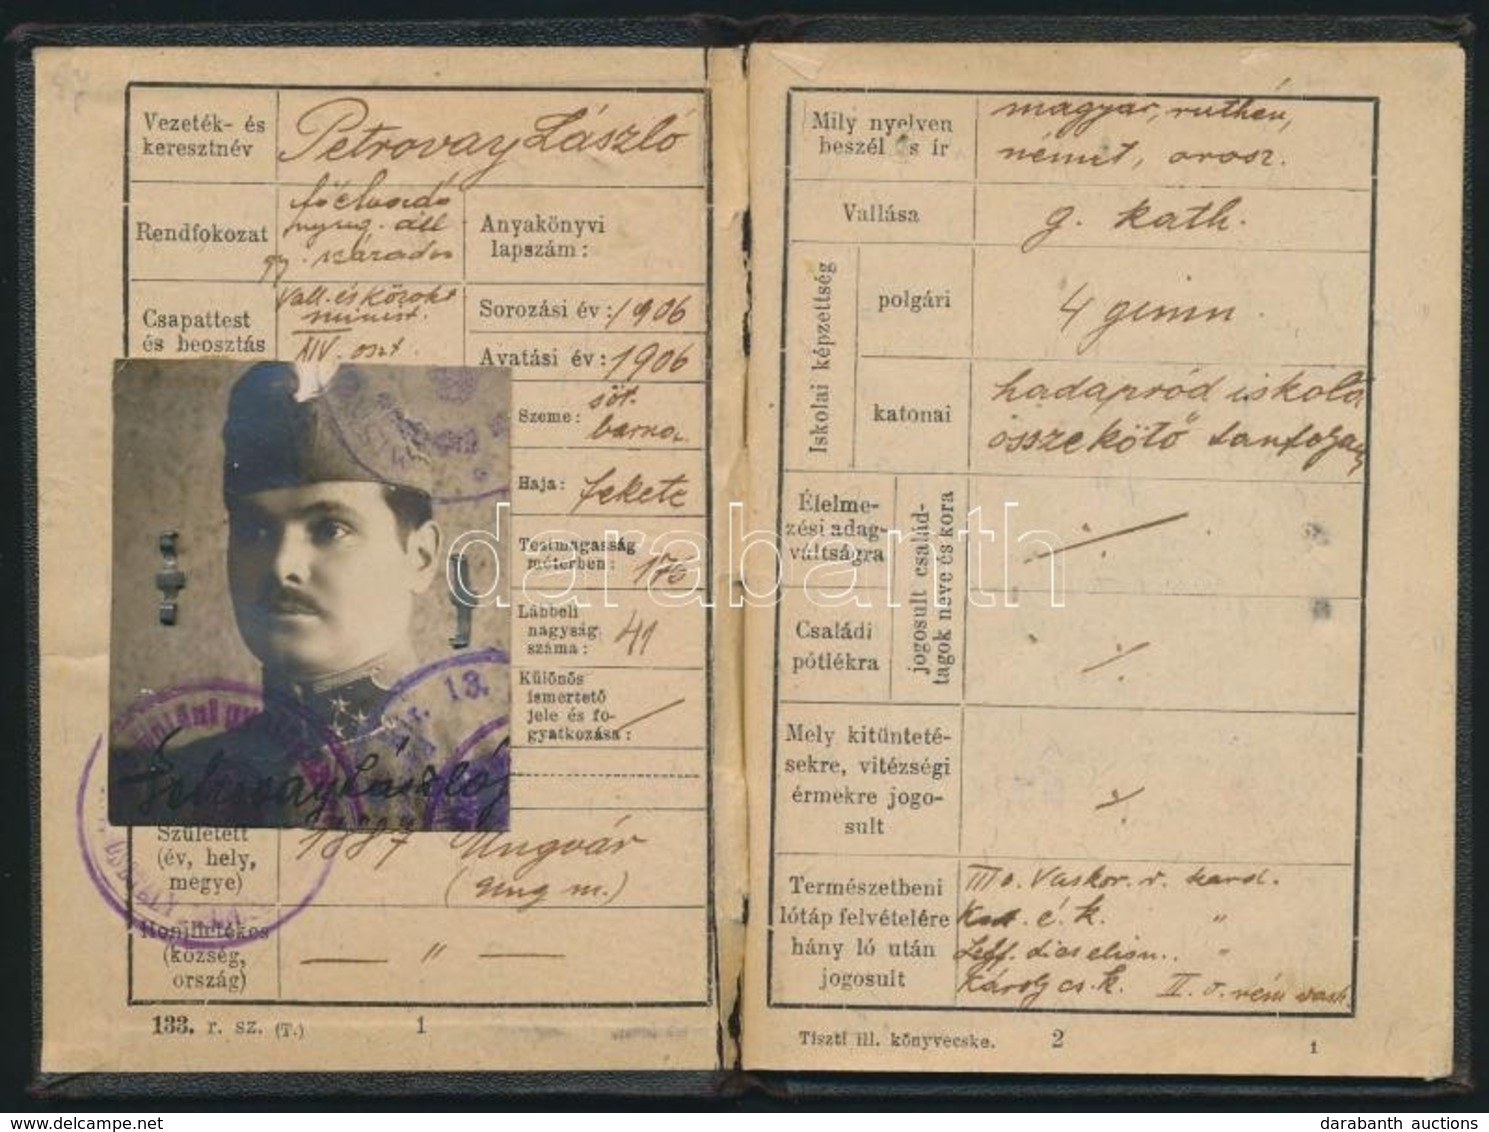 Vezeték- és
keresztnév
Petrovay László
Rendfokozat
nyug. áll
százados
Anyakönyvi
lapszám :
Csapattest
és beosztás
Vall. és Közokt
minist.
XIV. oszt.
Sorozási év : 1906
Avatási év : 1906
Szeme : söt.
barna
Haja : fekete
Testmagasság
méterben : 175
Lábbeli
nagyság
száma : 41
Különös
ismertető
jele és fo-
gyatkozása :
13.
Petrovay László
Született
(év, hely,
megye)
1887 Ungvár
(Ung m.)
Honilletékes
(község,
ország)
— " —
133. r. sz. (T.)
1
Mily nyelven
beszél és ír
magyar, ruthén,
német, orosz.
Vallása
g. kath.
Iskolai képzettség
polgári
4 gimn.
katonai
hadapród iskola
összekötő tanfolyam
Élelme-
zési adag-
váltságra
Családi
pótlékra
jogosult család-
tagok neve és kora
Mely kitünteté-
sekre, vitézségi
érmekre jogo-
sult
Természetbeni
lótáp felvételére
hány ló után
jogosult
III o. Vaskor. r. kard.
é. k. "
"
Károly cs. k.
Tiszti ill. könyvecske.
2
1
darabanth
www.delcampe.net
darabanth auctions